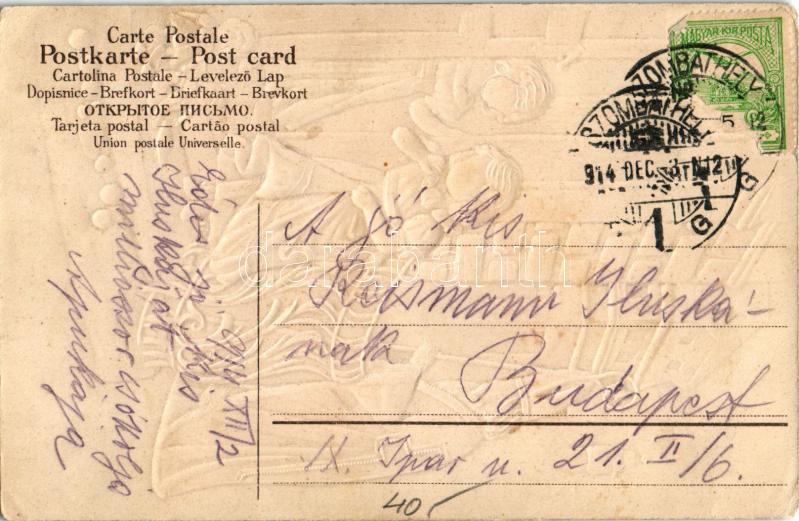 Carte Postale
Postkarte — Post card
Cartolina Postale – Levelező Lap
Dopisnice – Brefkort – Briefkaart – Brevkort
ОТКРЫТОЕ ПИСЬМО.
Tarjeta postal — Cartão postal
Union postale Universelle.
MAGYAR KIR. POSTA
SZOMBATHELY
SZOMBATHELY
914 DEC. 3. N12
1
G
G
5
914 XII/2
Édes jó kis
Iluskáját
milliószor csókolja
Apukája
A jó kis
Reismann Iluská-
nak
Budapest
IX. Ipar u. 21. II/6.
40
darabanth